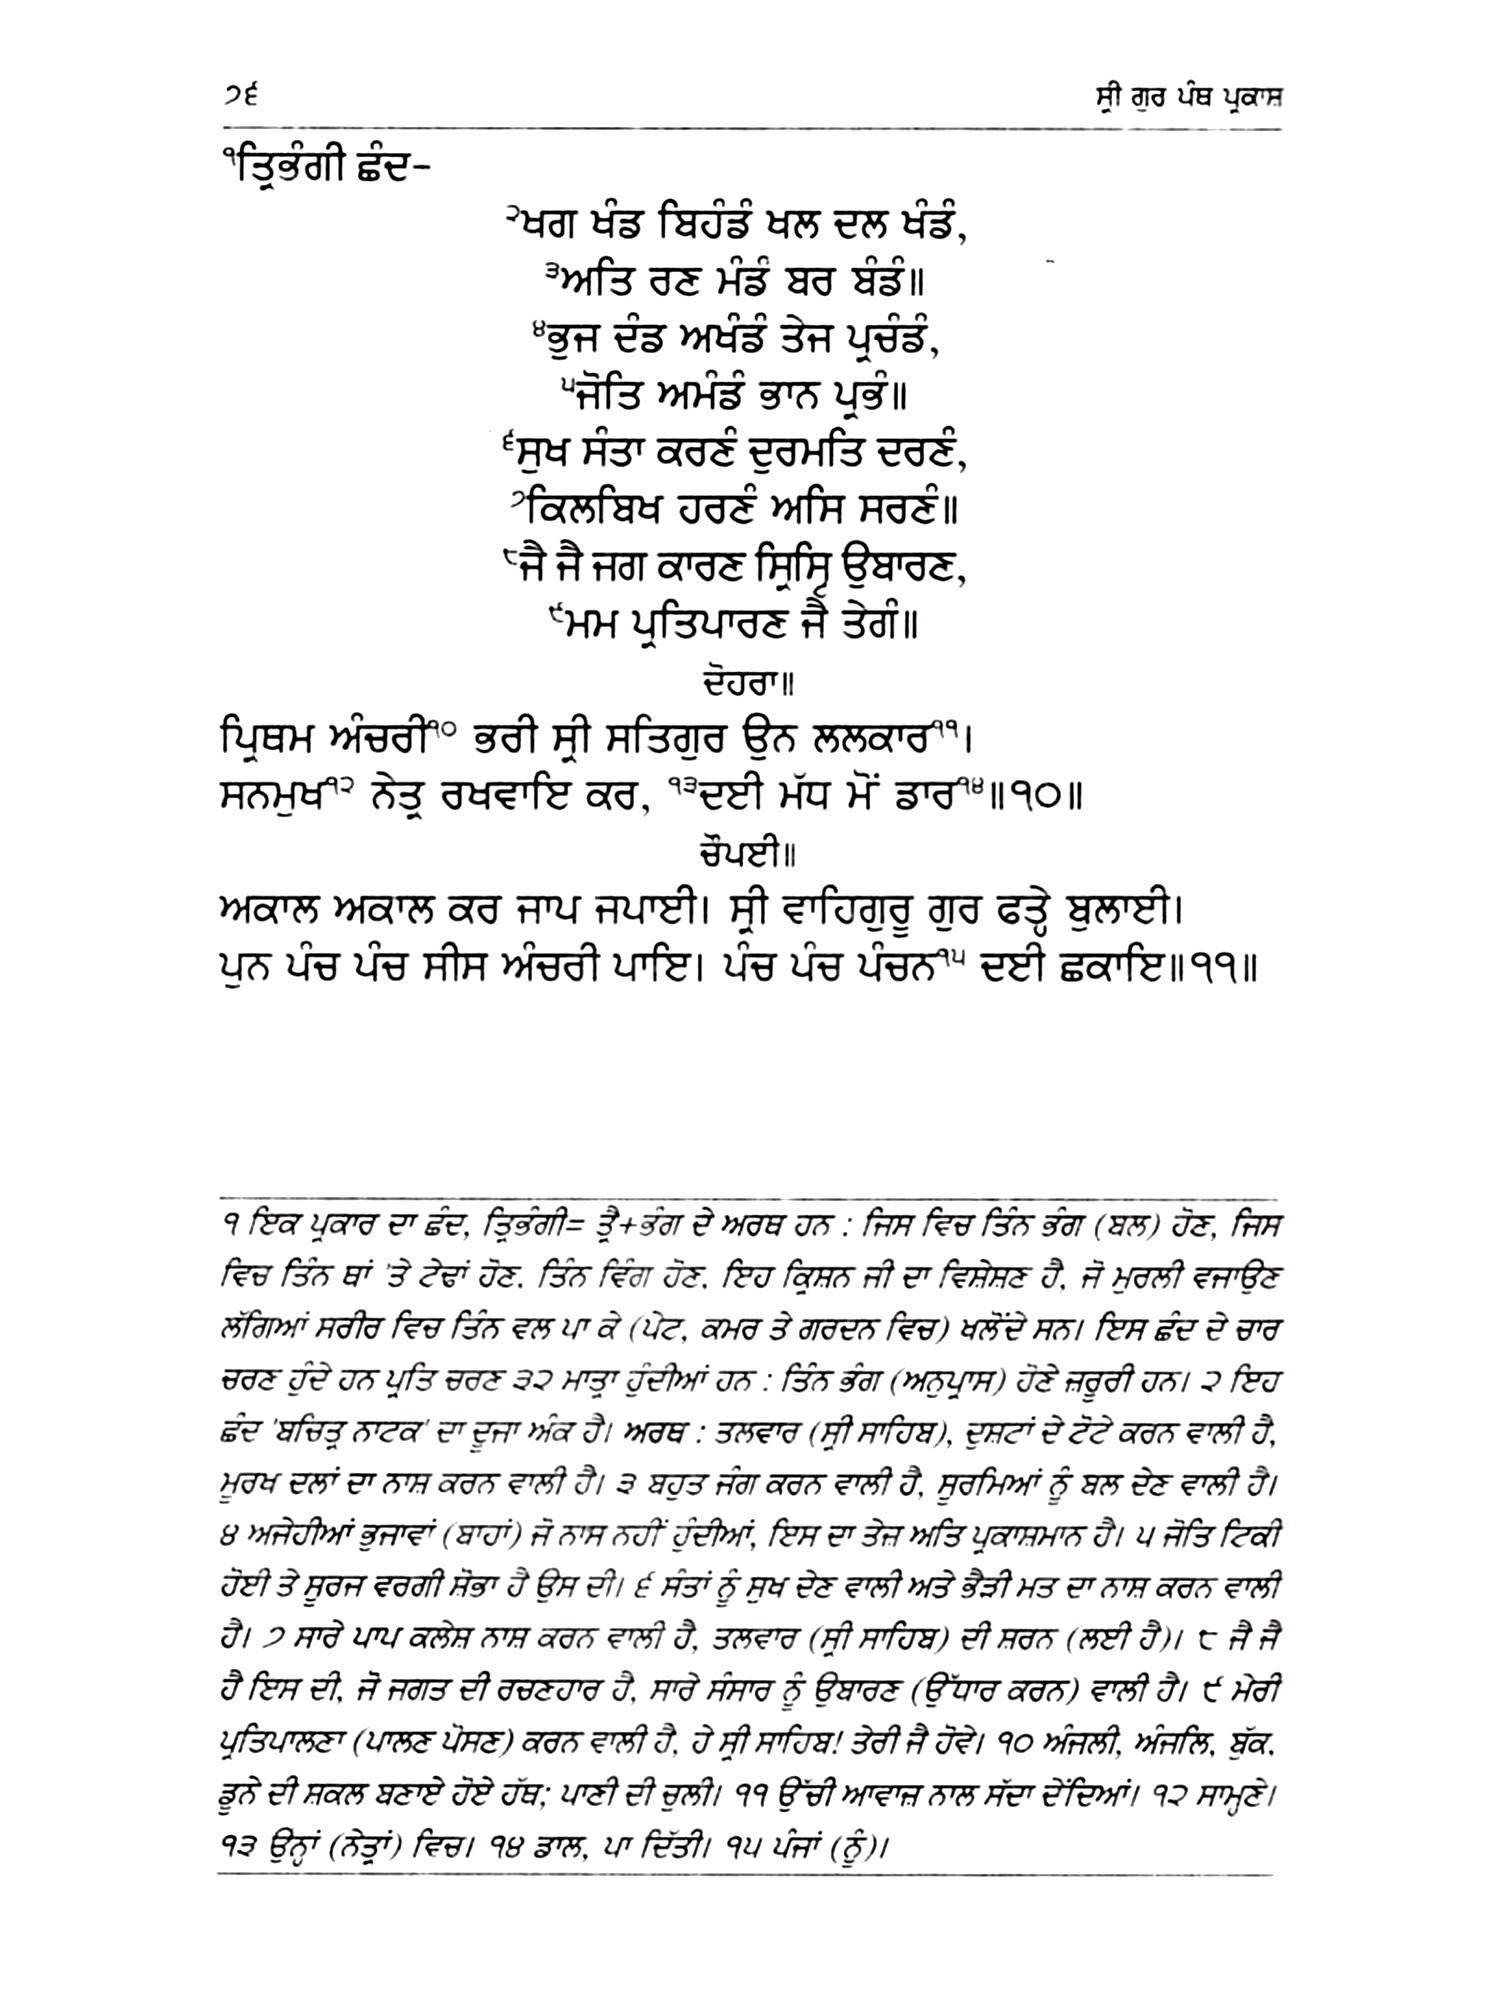 ੭੬ ਸ੍ਰੀ ਗੁਰ ਪੰਥ ਪ੍ਰਕਾਸ਼
੧ਤ੍ਰਿਭੰਗੀ ਛੰਦ-
੨ਖਗ ਖੰਡ ਬਿਹੰਡੰ ਖਲ ਦਲ ਖੰਡੰ,
੩ਅਤਿ ਰਣ ਮੰਡੰ ਬਰ ਬੰਡੰ॥
੪ਭੁਜ ਦੰਡ ਅਖੰਡੰ ਤੇਜ ਪ੍ਰਚੰਡੰ,
੫ਜੋਤਿ ਅਮੰਡੰ ਭਾਨ ਪ੍ਰਭੰ॥
੬ਸੁਖ ਸੰਤਾ ਕਰਣੰ ਦੁਰਮਤਿ ਦਰਣੰ,
੭ਕਿਲਬਿਖ ਹਰਣੰ ਅਸਿ ਸਰਣੰ॥
੮ਜੈ ਜੈ ਜਗ ਕਾਰਣ ਸ੍ਰਿਸ੍ਟਿ ਉਬਾਰਣ,
੯ਮਮ ਪ੍ਰਤਿਪਾਰਣ ਜੈ ਤੇਗੰ॥
ਦੋਹਰਾ॥
ਪ੍ਰਿਥਮ ਅੰਚਰੀ੧੦ ਭਰੀ ਸ੍ਰੀ ਸਤਿਗੁਰ ਉਨ ਲਲਕਾਰ੧੧।
ਸਨਮੁਖ੧੨ ਨੇਤ੍ਰ ਰਖਵਾਇ ਕਰ, ੧੩ਦਈ ਮੱਧ ਮੋਂ ਡਾਰ੧੪॥੧੦॥
ਚੌਪਈ॥
ਅਕਾਲ ਅਕਾਲ ਕਰ ਜਾਪ ਜਪਾਈ। ਸ੍ਰੀ ਵਾਹਿਗੁਰੂ ਗੁਰ ਫਤ੍ਹੇ ਬੁਲਾਈ।
ਪੁਨ ਪੰਚ ਪੰਚ ਸੀਸ ਅੰਚਰੀ ਪਾਇ। ਪੰਚ ਪੰਚ ਪੰਚਨ੧੫ ਦਈ ਛਕਾਇ॥੧੧॥
੧ ਇਕ ਪ੍ਰਕਾਰ ਦਾ ਛੰਦ, ਤ੍ਰਿਭੰਗੀ= ਤ੍ਰੈ+ਭੰਗ ਦੇ ਅਰਥ ਹਨ : ਜਿਸ ਵਿਚ ਤਿੰਨ ਭੰਗ (ਬਲ) ਹੋਣ, ਜਿਸ
ਵਿਚ ਤਿੰਨ ਥਾਂ 'ਤੇ ਟੇਢਾਂ ਹੋਣ, ਤਿੰਨ ਵਿੰਗ ਹੋਣ, ਇਹ ਕ੍ਰਿਸ਼ਨ ਜੀ ਦਾ ਵਿਸ਼ੇਸ਼ਣ ਹੈ, ਜੋ ਮੁਰਲੀ ਵਜਾਉਣ
ਲੱਗਿਆਂ ਸਰੀਰ ਵਿਚ ਤਿੰਨ ਵਲ ਪਾ ਕੇ (ਪੇਟ, ਕਮਰ ਤੇ ਗਰਦਨ ਵਿਚ) ਖਲੋਂਦੇ ਸਨ। ਇਸ ਛੰਦ ਦੇ ਚਾਰ
ਚਰਣ ਹੁੰਦੇ ਹਨ ਪ੍ਰਤਿ ਚਰਣ ੩੨ ਮਾਤ੍ਰਾ ਹੁੰਦੀਆਂ ਹਨ : ਤਿੰਨ ਭੰਗ (ਅਨੁਪ੍ਰਾਸ) ਹੋਣੇ ਜ਼ਰੂਰੀ ਹਨ। ੨ ਇਹ
ਛੰਦ 'ਬਚਿਤ੍ਰ ਨਾਟਕ' ਦਾ ਦੂਜਾ ਅੰਕ ਹੈ। ਅਰਥ : ਤਲਵਾਰ (ਸ੍ਰੀ ਸਾਹਿਬ), ਦੁਸ਼ਟਾਂ ਦੇ ਟੋਟੇ ਕਰਨ ਵਾਲੀ ਹੈ,
ਮੂਰਖ ਦਲਾਂ ਦਾ ਨਾਸ਼ ਕਰਨ ਵਾਲੀ ਹੈ। ੩ ਬਹੁਤ ਜੰਗ ਕਰਨ ਵਾਲੀ ਹੈ, ਸੂਰਮਿਆਂ ਨੂੰ ਬਲ ਦੇਣ ਵਾਲੀ ਹੈ।
੪ ਅਜੇਹੀਆਂ ਭੁਜਾਵਾਂ (ਬਾਹਾਂ) ਜੋ ਨਾਸ ਨਹੀਂ ਹੁੰਦੀਆਂ, ਇਸ ਦਾ ਤੇਜ਼ ਅਤਿ ਪ੍ਰਕਾਸ਼ਮਾਨ ਹੈ। ੫ ਜੋਤਿ ਟਿਕੀ
ਹੋਈ ਤੇ ਸੂਰਜ ਵਰਗੀ ਸ਼ੋਭਾ ਹੈ ਉਸ ਦੀ। ੬ ਸੰਤਾਂ ਨੂੰ ਸੁਖ ਦੇਣ ਵਾਲੀ ਅਤੇ ਭੈੜੀ ਮਤ ਦਾ ਨਾਸ਼ ਕਰਨ ਵਾਲੀ
ਹੈ। ੭ ਸਾਰੇ ਪਾਪ ਕਲੇਸ਼ ਨਾਸ਼ ਕਰਨ ਵਾਲੀ ਹੈ, ਤਲਵਾਰ (ਸ੍ਰੀ ਸਾਹਿਬ) ਦੀ ਸ਼ਰਨ (ਲਈ ਹੈ)। ੮ ਜੈ ਜੈ
ਹੈ ਇਸ ਦੀ, ਜੋ ਜਗਤ ਦੀ ਰਚਣਹਾਰ ਹੈ, ਸਾਰੇ ਸੰਸਾਰ ਨੂੰ ਉਬਾਰਣ (ਉੱਧਾਰ ਕਰਨ) ਵਾਲੀ ਹੈ। ੯ ਮੇਰੀ
ਪ੍ਰਤਿਪਾਲਣਾ (ਪਾਲਣ ਪੋਸਣ) ਕਰਨ ਵਾਲੀ ਹੈ, ਹੇ ਸ੍ਰੀ ਸਾਹਿਬ! ਤੇਰੀ ਜੈ ਹੋਵੇ। ੧੦ ਅੰਜਲੀ, ਅੰਜਲਿ, ਬੁੱਕ,
ਡੂਨੇ ਦੀ ਸ਼ਕਲ ਬਣਾਏ ਹੋਏ ਹੱਥ; ਪਾਣੀ ਦੀ ਚੁਲੀ। ੧੧ ਉੱਚੀ ਆਵਾਜ਼ ਨਾਲ ਸੱਦਾ ਦੇਂਦਿਆਂ। ੧੨ ਸਾਮ੍ਹਣੇ।
੧੩ ਉਨ੍ਹਾਂ (ਨੇਤ੍ਰਾਂ) ਵਿਚ। ੧੪ ਡਾਲ, ਪਾ ਦਿੱਤੀ। ੧੫ ਪੰਜਾਂ (ਨੂੰ)।